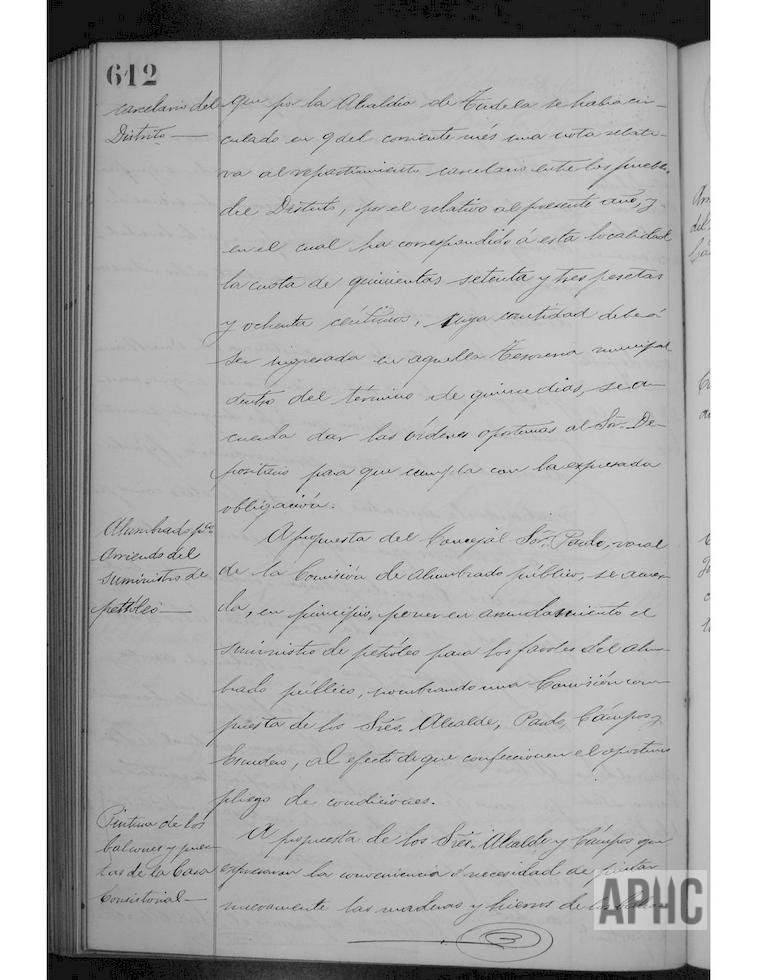 612
carcelario del
Distrito
que por la Alcaldía de Tudela se había cir-
culado en 9 del corriente més una nota relati-
va al repartimiento carcelario entre los pueblos
del Distrito, por el relativo al presente año, y
en el cual ha correspondido á esta localidad
la cuota de quinientas setenta y tres pesetas
y ochenta céntimos, cuya cantidad deberá
ser ingresada en aquella Tesorería municipal
dentro del término de quince dias, se a-
cuerda dar las órdenes oportunas al Sor. De-
positario para que cumpla con la expresada
obligación.
Alumbrado pco.
Arriendo del
suministro de
petróleo
A propuesta del Concejal Sor. Pardo, vocal
de la Comisión de alumbrado público, se acuer-
da, en principio, poner en arrendamiento el
suministro de petróleo para los faroles del alum-
brado público, nombrando una Comisión com-
puesta de los Sres. Alcalde, Pardo, Cámpos y
Escudero, al efecto de que confeccionen el oportuno
pliego de condiciones.
Pintura de los
balcones y puer-
tas de la Casa
Consistorial
A propuesta de los Sres. Alcalde y Cámpos que
expresaron la conveniencia é necesidad de pintar
nuevamente las maderas y hierros de
APHC